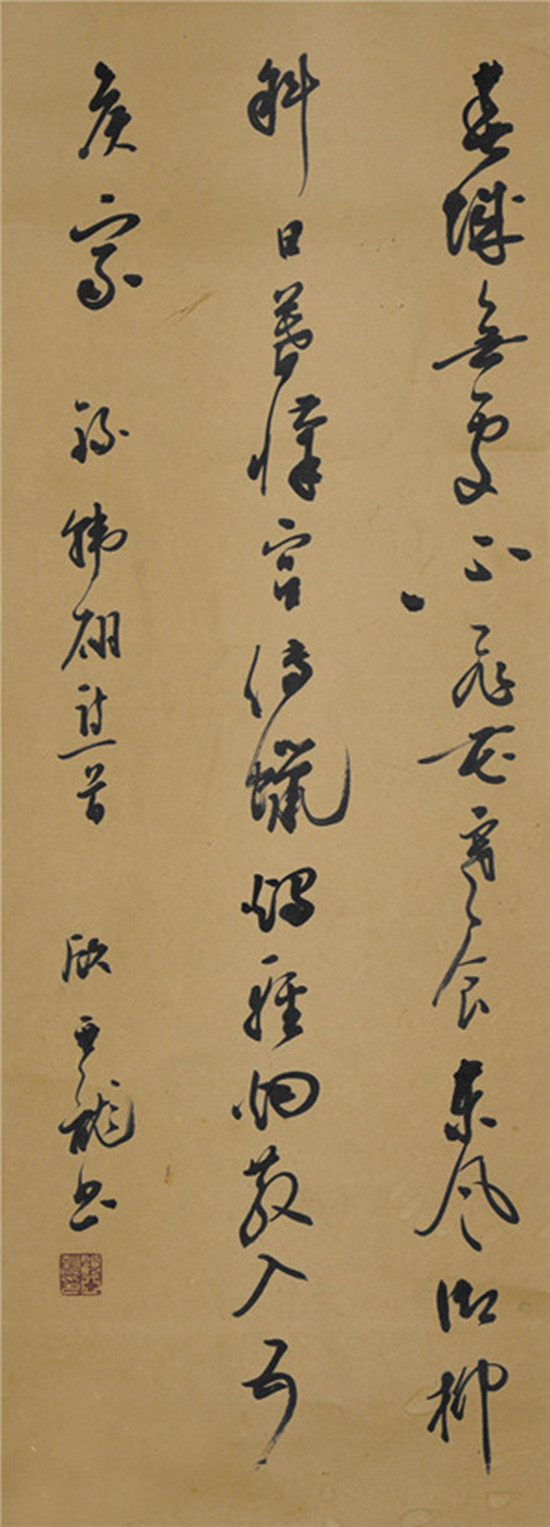 春城無處不飛花寒食東風御柳
斜日暮漢宮傳蠟燭輕烟散入五
侯家 錄韓翃詩一首 顧亞龍書